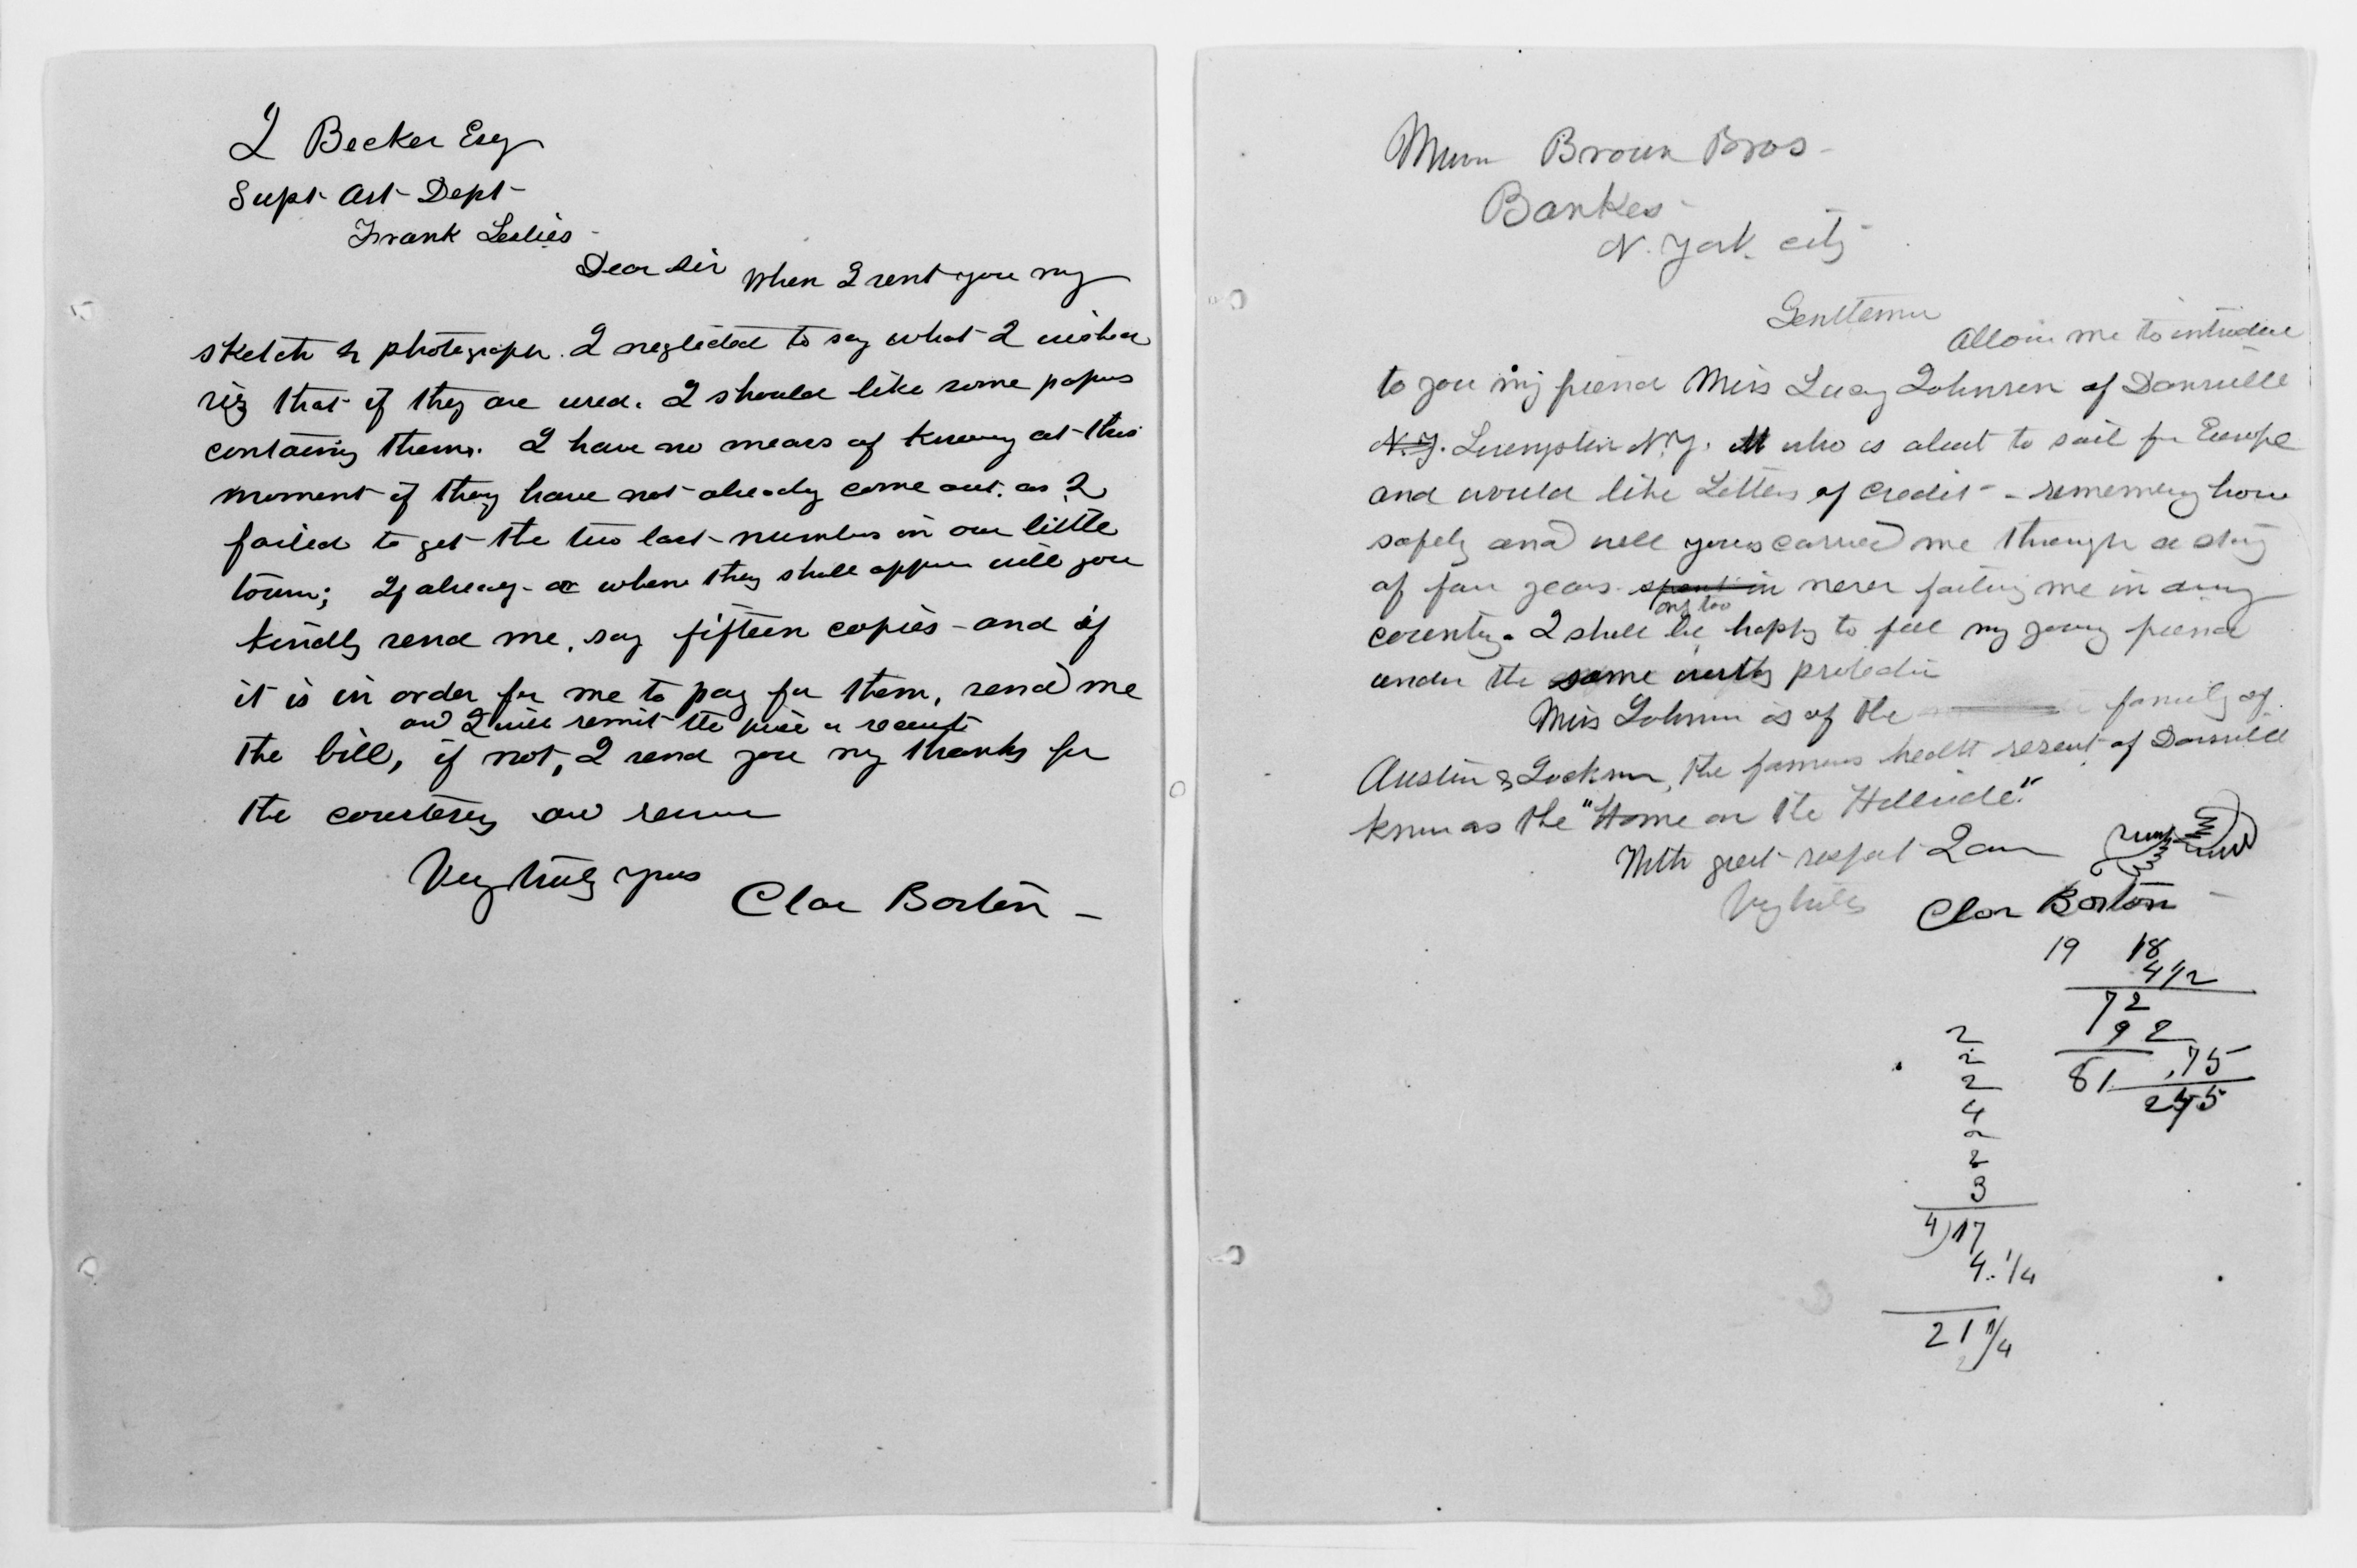 J Becker Esq
Supt Art Dept
Frank Leslies
Dear Sir When I sent you my
sketch & photograph. I neglected to say what I wished
viz that if they are used. I should like some papers
containing them. I have no means of knowing at this
moment if they have not already come out. as I
failed to get the two last numbers in our little
town; If already or when they shall appear will you
kindly send me, say fifteen copies – and if
it is in order for me to pay for them, send me
and I will remit the price on receipt
the bill, if not, I send you my thanks for
the courtesy and remain
Very truly yours
Clara Barton –
Messrs Brown Bros –
Bankers
N. York city
Gentlemen
Allow me to introduce
to you my friend Miss Lucy Johnson of Dansville
N.Y. Livingston N.Y. who is about to sail for Europe
and would like Letters of Credit – remembering how
safely and well yours carried me through a stay
of four years spent in never failing me in any
country. I shall be happy to feel my young friend
under the same protection
Miss Johnson is of the family of
Austin & Jackson, the famous health resort of Dansville
known as the "Home on the Hillside"
With great respect I am
Very truly
Clara Barton –
19 18
4 1/2
72
9 2
81 .75
2
2
2
4
2
2
3
4)17
4 1/4
21 1/4